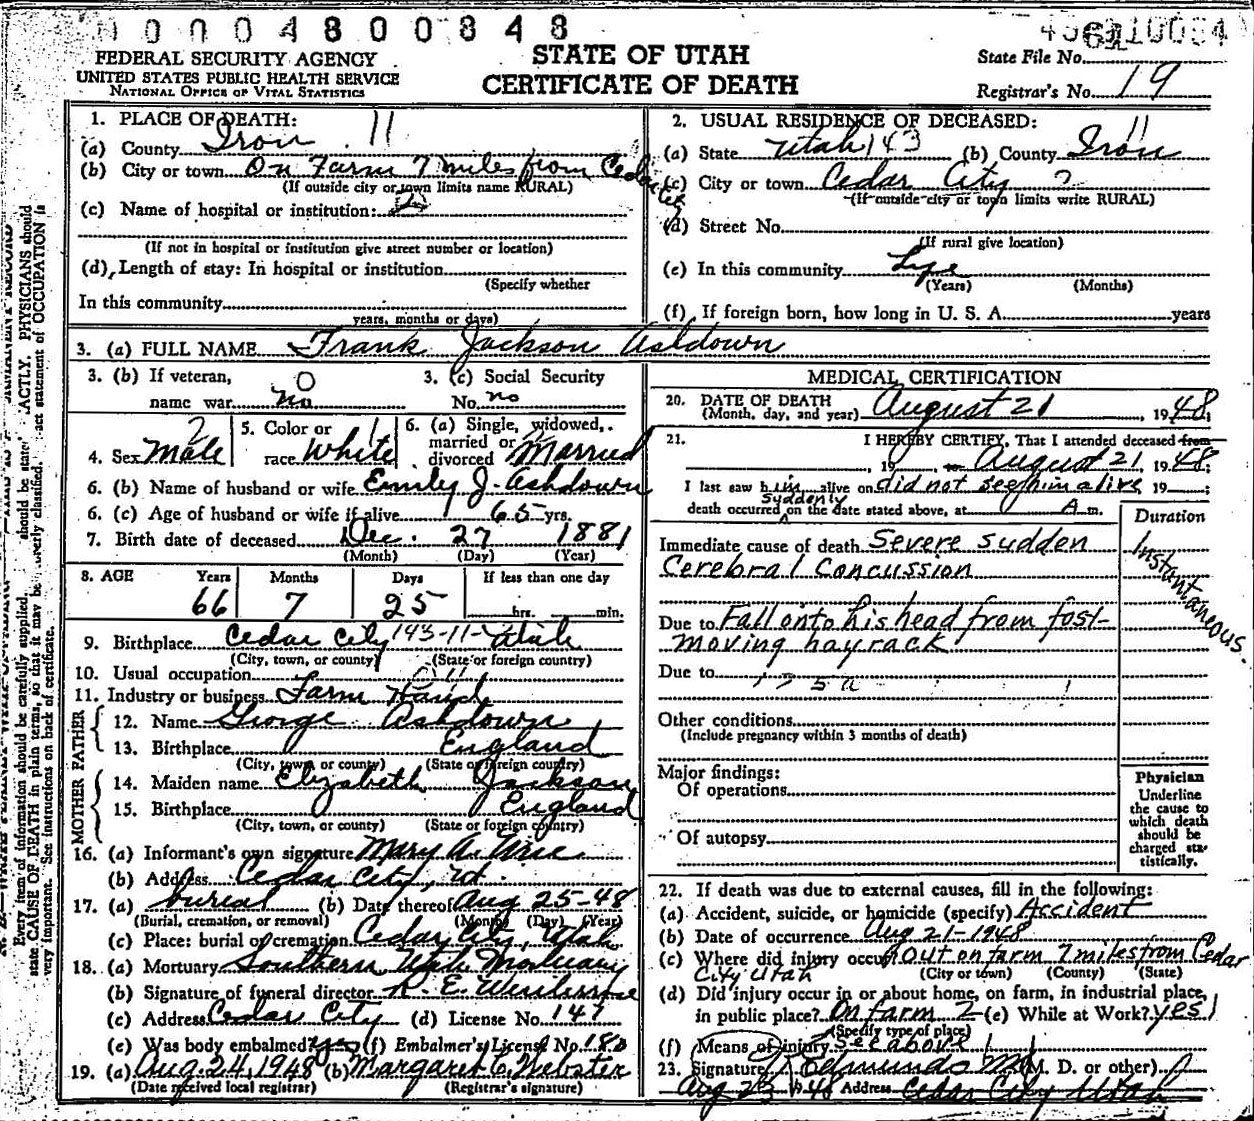 00004800848
State File No. 61
Registrar's No. 19
FEDERAL SECURITY AGENCY
UNITED STATES PUBLIC HEALTH SERVICE
NATIONAL OFFICE OF VITAL STATISTICS
STATE OF UTAH
CERTIFICATE OF DEATH
1. PLACE OF DEATH: 11
(a) County Iron
(b) City or town On Farm 7 miles from Cedar City
(If outside city or town limits name RURAL)
(c) Name of hospital or institution:
(If not in hospital or institution give street number or location)
(d) Length of stay: In hospital or institution
(Specify whether
In this community
years, months or days)
2. USUAL RESIDENCE OF DECEASED:
(a) State Utah 143 (b) County Iron 11
(c) City or town Cedar City
(If outside city or town limits write RURAL)
(d) Street No.
(If rural give location)
(e) In this community Life
(Years) (Months)
(f) If foreign born, how long in U. S. A. years
3. (a) FULL NAME Frank Jackson Ashdown
3. (b) If veteran, 0
name war no
3. (c) Social Security
No. no
4. Sex Male 2
5. Color or 1
race White
6. (a) Single, widowed,
married or
divorced Married
6. (b) Name of husband or wife Emily J. Ashdown
6. (c) Age of husband or wife if alive 65 yrs.
7. Birth date of deceased Dec. 27 1881
(Month) (Day) (Year)
8. AGE Years Months Days If less than one day
66 7 25 hrs. min.
9. Birthplace Cedar City 143-11- Utah
(City, town, or county) (State or foreign country)
10. Usual occupation
11. Industry or business Farm Hand
FATHER
12. Name George Ashdown
13. Birthplace England
(City, town or county) (State or foreign country)
MOTHER
14. Maiden name Elizabeth Jackson
15. Birthplace England
(City, town, or county) (State or foreign country)
16. (a) Informant's own signature Mary A. Urie
(b) Address Cedar City, Ut.
17. (a) burial (b) Date thereof Aug 25-48
(Burial, cremation, or removal) (Month) (Day) (Year)
(c) Place: burial or cremation Cedar City, Utah
18. (a) Mortuary Southern Utah Mortuary
(b) Signature of funeral director R. E.
(c) Address Cedar City (d) License No. 147
(e) Was body embalmed? yes (f) Embalmer's License No. 180
19. (a) Aug. 24, 1948 (b) Margaret C. Webster
(Date received local registrar) (Registrar's signature)
MEDICAL CERTIFICATION
20. DATE OF DEATH
(Month, day, and year) August 21, 1948;
21. I HEREBY CERTIFY, That I attended deceased from
, 19 , to August 21, 1948;
I last saw him alive on did not see him alive, 19 ;
suddenly
death occurred on the date stated above, at A m.
Duration
Instantaneous.
Immediate cause of death Severe sudden
Cerebral Concussion
Due to Fall onto his head from fast-
moving hayrack
Due to
175a
Other conditions
(Include pregnancy within 3 months of death)
Major findings:
Of operations
Of autopsy
Physician
Underline
the cause to
which death
should be
charged sta-
tistically.
22. If death was due to external causes, fill in the following:
(a) Accident, suicide, or homicide (specify) Accident
(b) Date of occurrence Aug 21-1948
(c) Where did injury occur? Out on farm 7 miles from Cedar
City Utah (City or town) (County) (State)
(d) Did injury occur in or about home, on farm, in industrial place,
in public place? On farm 2 (e) While at Work? yes 1
(Specify type of place)
(f) Means of injury See above
23. Signature Edmunds MD (M. D. or other)
Aug 23 1948 Address Cedar City Utah